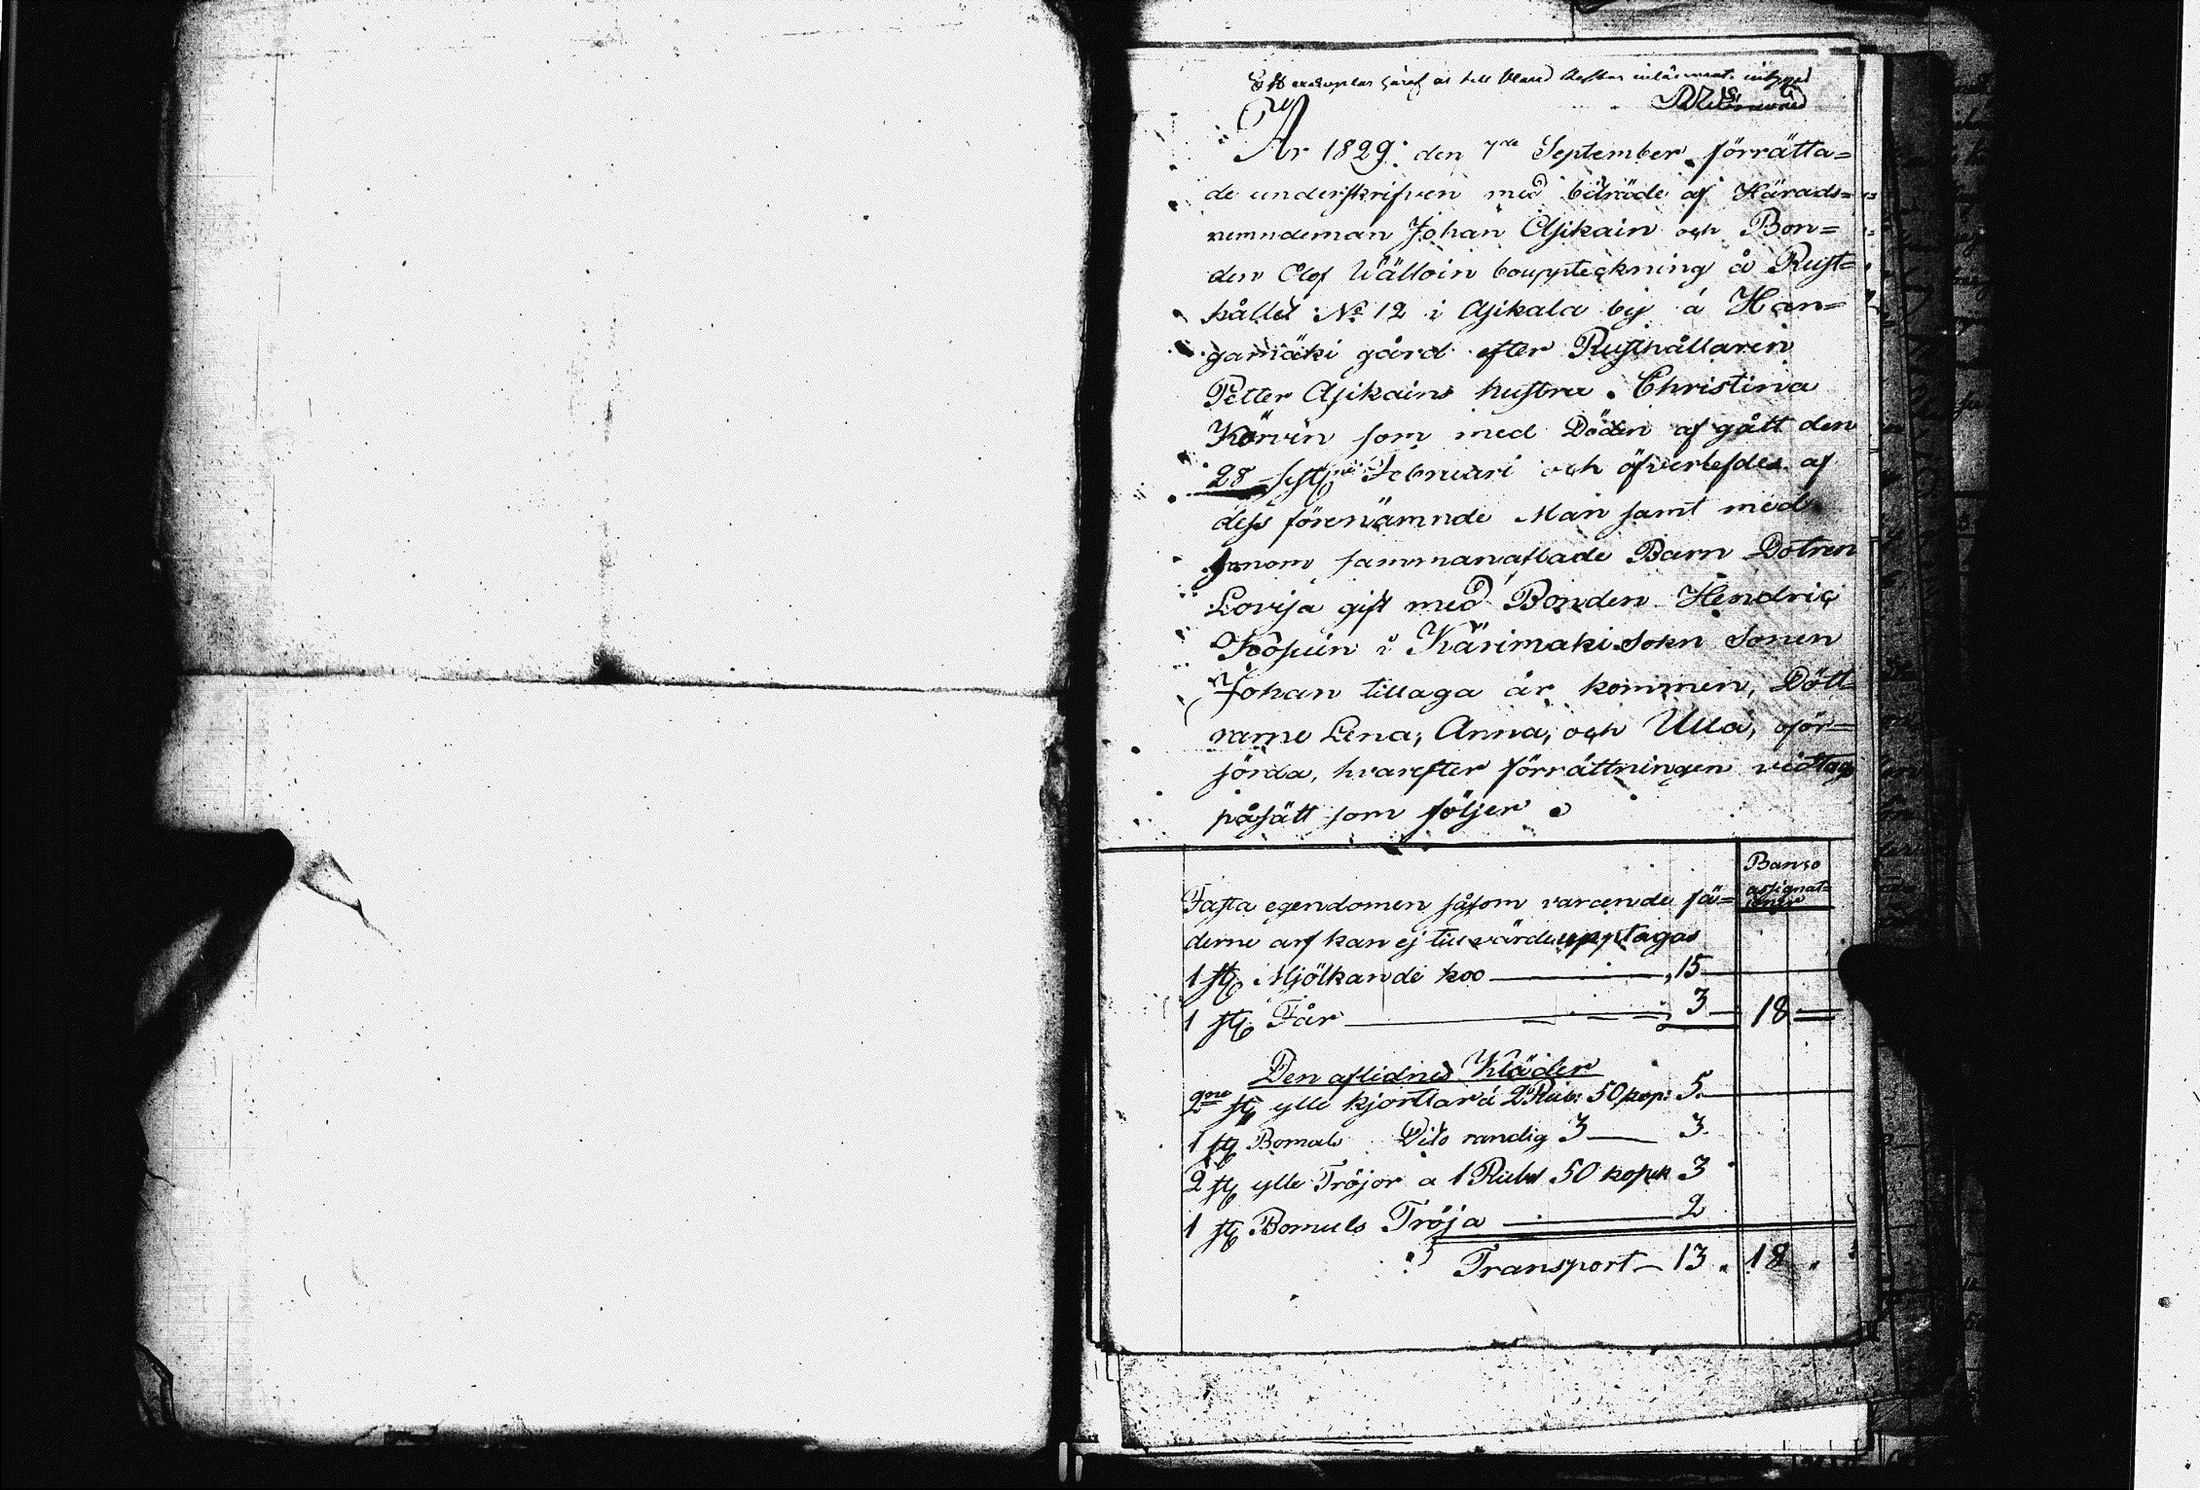 Ett exemplar häraf är till
År 1829. den 7de September förrätta=
de underskrifven med biträde af Härads=
nemndeman Johan Asikain och Bon=
den Olof Wälloin bouppteckning å Rust=
hållet No 12 i Asikala by å Han=
gamäki gård efter Rusthållaren
Petter Asikains hustru Christina
som med Döden afgått den
28 Februari och öfverlefdes af
dess förenämnde Man samt med
honom sammanaflade Barn Dotren
Lovisa gift med Bonden Hendric
i Kärimaki Sokn Sonen
Johan tillaga år kommen, Dött=
rarne Lena, Anna, och Ulla, oför=
sörda, hvarefter förrättningen vidtogs
påsätt som följer
Banco
assignat=
ioner
Fasta egendomen såsom varande fä=
derne arf kan ej till värde upptagas
1 st Mjölkande koo 15
1 st Får 3 18
Den aflidnes Kläder
2ne st ylle kjortlar á 2 Rub: 50 kop: 5.
1 st Bomuls Dito randig 3 3.
2 st ylle Tröjor a 1 Rubel 50 kopek 3
1 st Bomuls Tröja 2
Transport 13 " 18 "